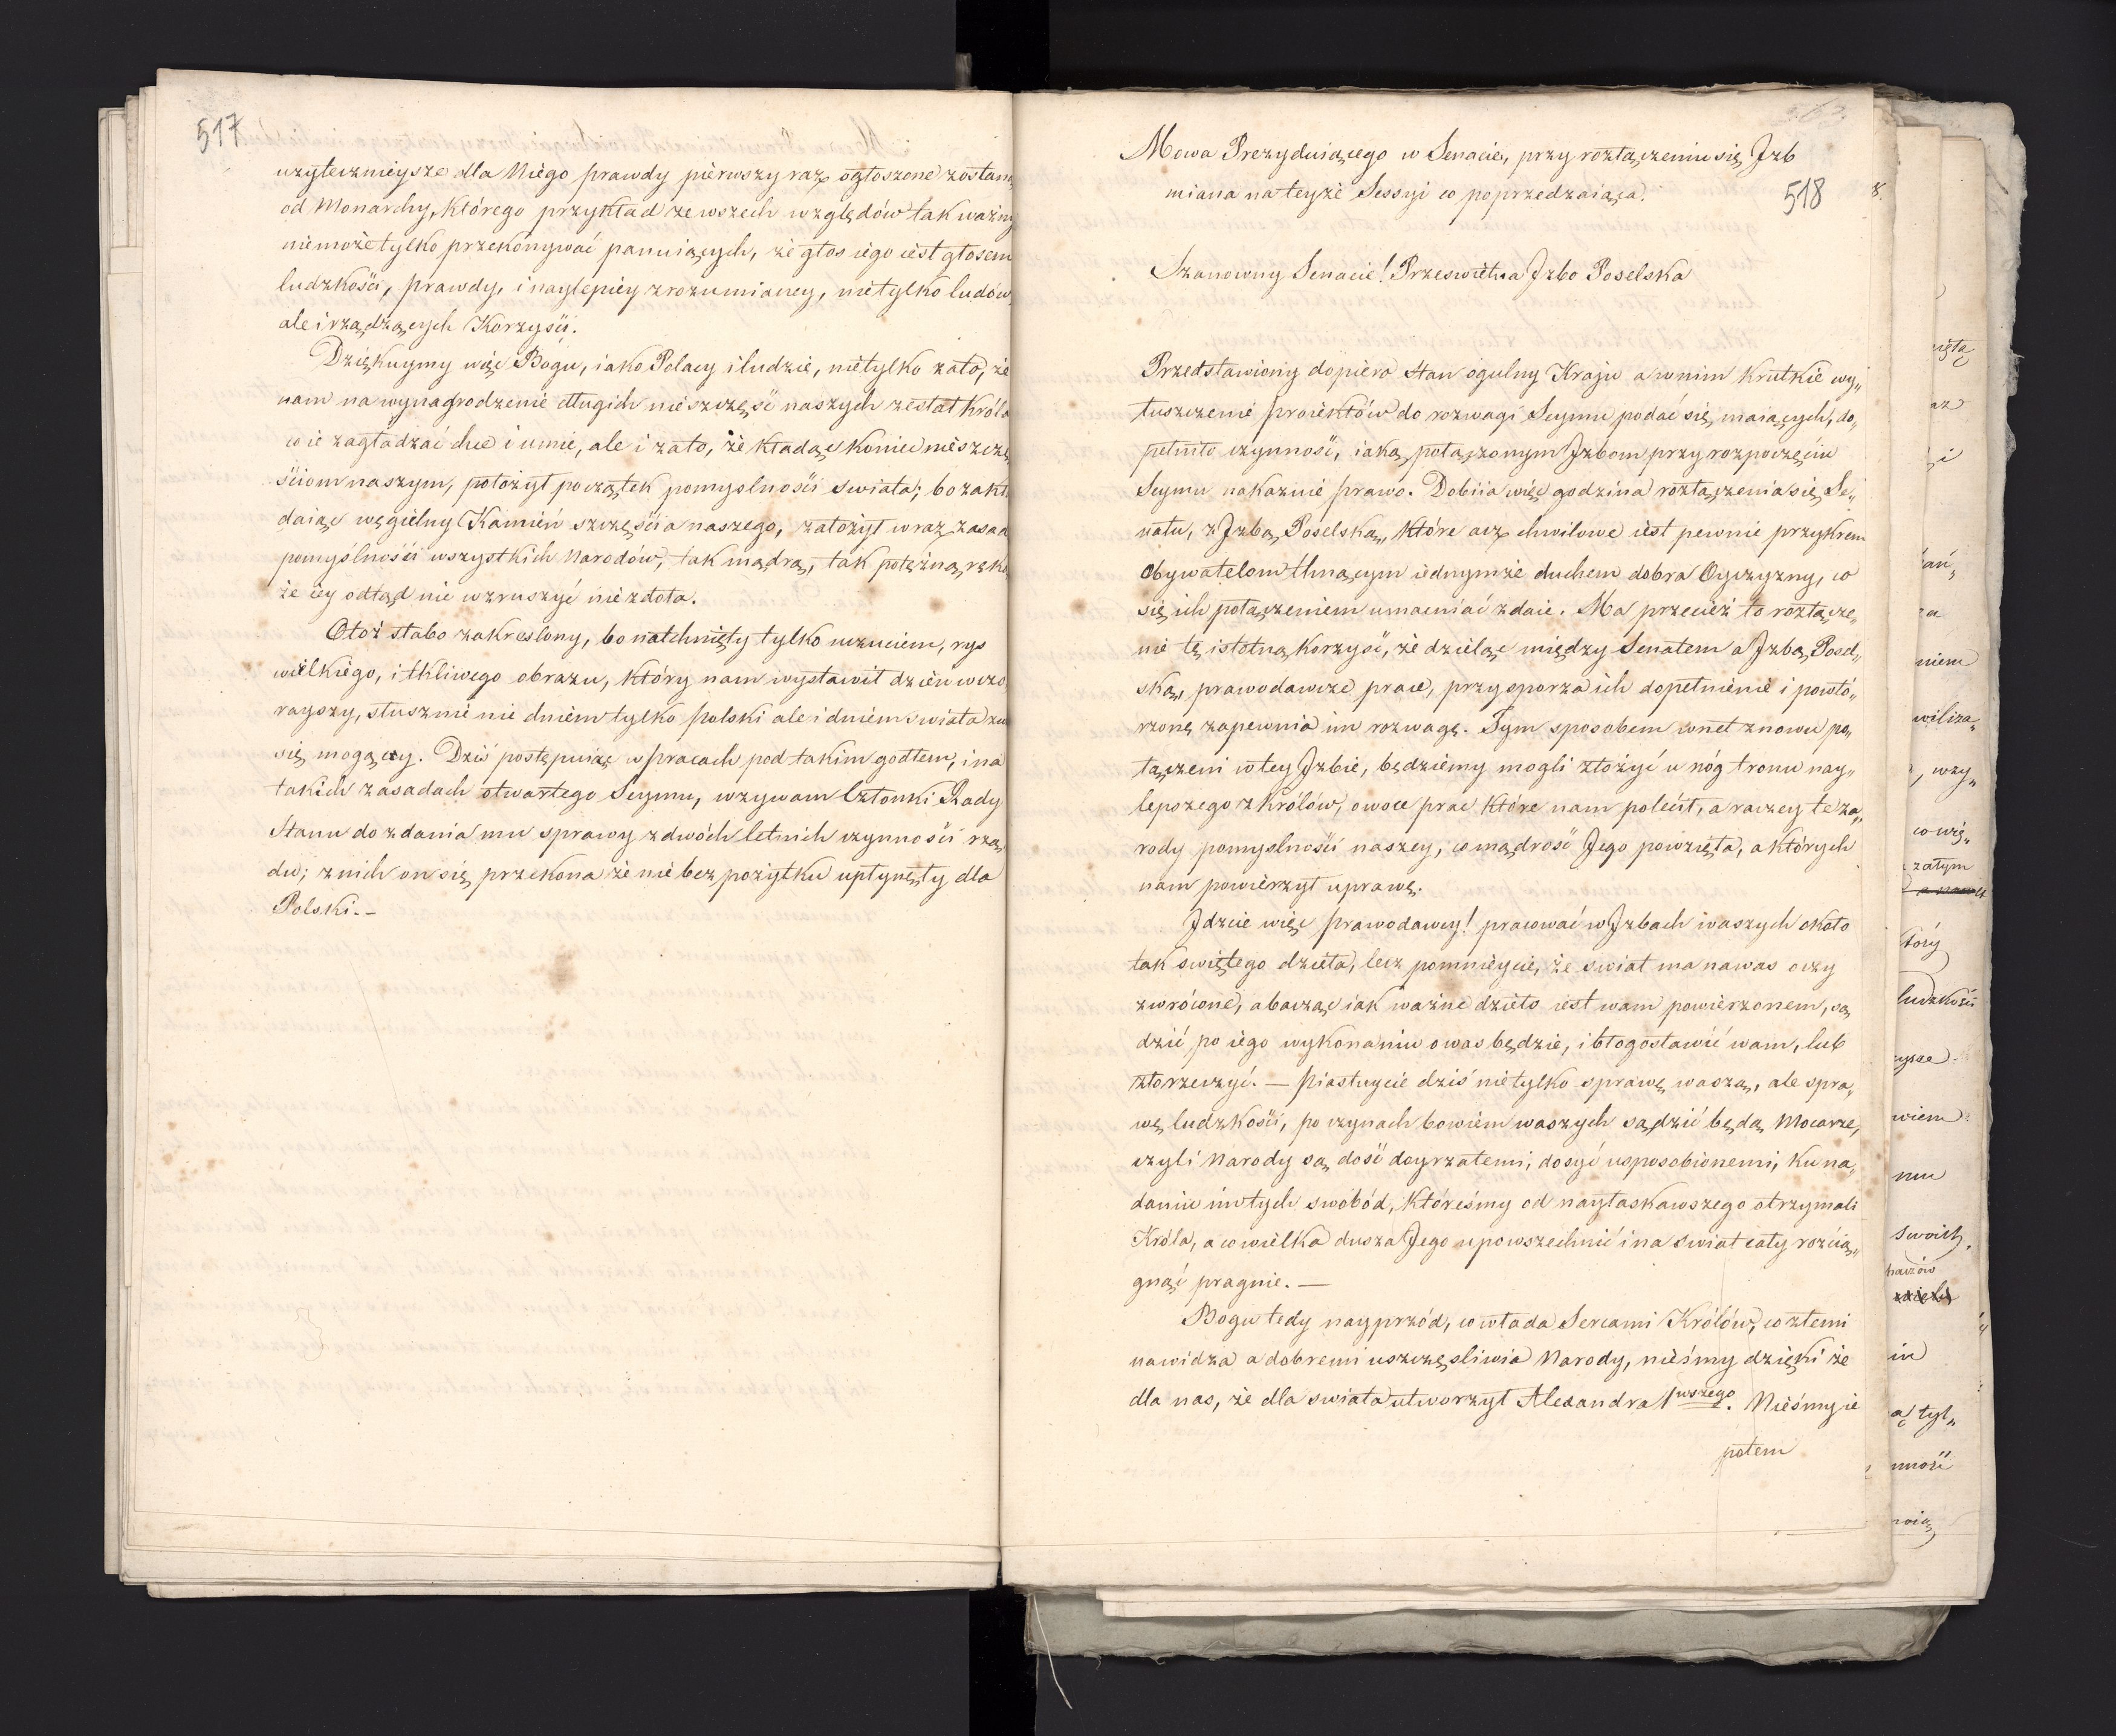 517
uzytecznieysze dla Niego prawdy pierwszy raz ogłoszone zostaną
od Monarchy, którego przykład ze wszech względów tak ważny
niemoże tylko przekonywać panuiących, że głos iego iest głosem
ludzkości, prawdy, i naylepiey zrozumianey, nietylko ludów,
ale i rządzących Korzyści.
Dziękuymy więc Bogu, iako Polacy i ludzie, nietylko zato, że
nam na wynagrodzenie długich nieszczęść naszych zesłał Króla
co ie zagładzać chce i umie, ale i zato, że kładąc koniec nieszczę
ściom naszym, położył początek pomyslności swiata; bo zakł
daiąc węgielny Kamień szczęścia naszego, założył wraz zasad
pomyślności wszystkich Narodów, tak mądrą, tak potężną ręką
że iey odtąd nic wzruszyć niezdoła.
Otoż słabo zakreslony, bo natchnięty tylko uczuciem, rys
wielkiego, i tkliwego obrazu, który nam wystawił dzień wczo
rayszy, słusznie nie dniem tylko polski ale i dniem swiata zwa
się mogący. Dziś postępuiąc w pracach pod takim godłem, i na
takich zasadach otwartego Seymu, wzywam Członki Rady
Stanu do zdania mu sprawy z dwóch letnich czynności rzą
du; z nich on się przekona że nie bez pożytku upłynęły dla
Polski.–
Mowa Prezyduiącego w Senacie, przy rozłączeniu się Jzb
miana na teyże Sessyi co poprzedzaiąca.
518
8.
Szanowny Senacie! Przeswietna Jzbo Poselska
Przedstawiony dopiero stan ogulny Kraju a w nim krutkie wy„
łuszczenie proiektów do rozwagi Seymu podać się maiących, do„
pełniło czynność, iaką połączonym Jzbom przy rozpoczęciu
Seymu nakazuie prawo. Dobiia więc godzina rozłączenia się Se„
natu, z Jzbą Poselską, które acz chwilowe iest pewnie przykrem
Obywatelom tlnącym iednymże duchem dobra Oyczyzny, co
się ich połączeniem umacniać zdaie. Ma przecież to rozłącze„
nie tę istotną korzyść, że dzieląc między Senatem a Jzbą Posel„
ską, prawodawcze prace, przysporza ich dopełnienie i powtó„
rzoną zapewnia im rozwagę. Tym sposobem wnet znowu po„
łączeni w tey Jzbie, będziemy mogli złożyć u nóg tronu nay„
lepszego z królów, owoce prac które nam polecił, a raczey te za„
rody pomyslności naszey, co mądrość Jego powzięła, a których
nam powierzył uprawę.
Jdzcie więc prawodawcy! pracować w Jzbach waszych około
tak świętego dzieła, lecz pomnieycie, że swiat ma na was oczy
zwrócone, a bacząc iak ważne dzieło iest wam powierzonem, są„
dzić po iego wykonaniu o was będzie, i błogosławić wam, lub
złorzeczyć. – Piastuycie dziś nietylko sprawę waszą, ale spra„
wę ludzkości, po czynach bowiem waszych sądzić będą Mocarze,
czyli Narody są dość doyrzałemi, dosyć usposobionemi, ku na„
daniu im tych swobód, któreśmy od nayłaskawszego otrzymali
Króla, a co wielka dusza Jego upowszechnić i na swiat cały rozcią„
gnąć pragnie. —
Bogu tedy nayprzód, co włada Sercami Królów, co złemi
nawidza a dobremi uszczęsliwia Narody, nieśmy dzięki że
dla nas, że dla swiata utworzył Alexandra 1wszego. Nieśmy ie
potem
az
niem
wiliza„
, wzy„
co wię„
zatym
tóry
ludzkości
wiem
mu
swoich